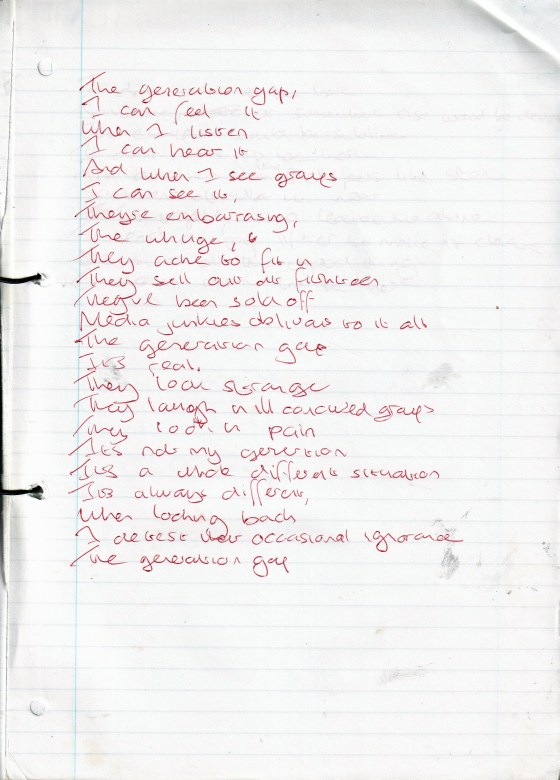 The generation gap,
I can feel it
When I listen
I can hear it
And when I see groups
I can see it,
They're embarrasing,
The whinge,
They ache to fit in
They sell out at fishtoen
They've been sold off
Media junkies oblivious to it all
The generation gap
It's real.
They look strange
They laugh in ill conceived groups
They look in pain
It's not my generation
It's a whole different situation
It's always different,
When looking back
I detest their occasional ignorance
The generation gap